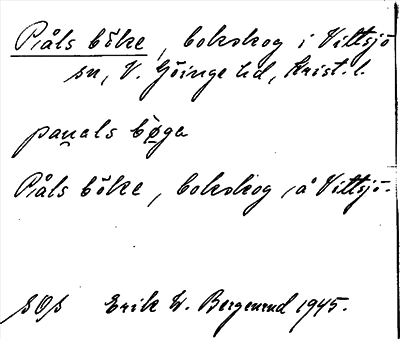 Påls böke, bokskog i Vittsjö
sn, V. Göinge hd, Krist. l.
pau̯als bøga
Påls böke, bokskog å Vittsjö.
SOS Erik W. Bergenrud 1945.